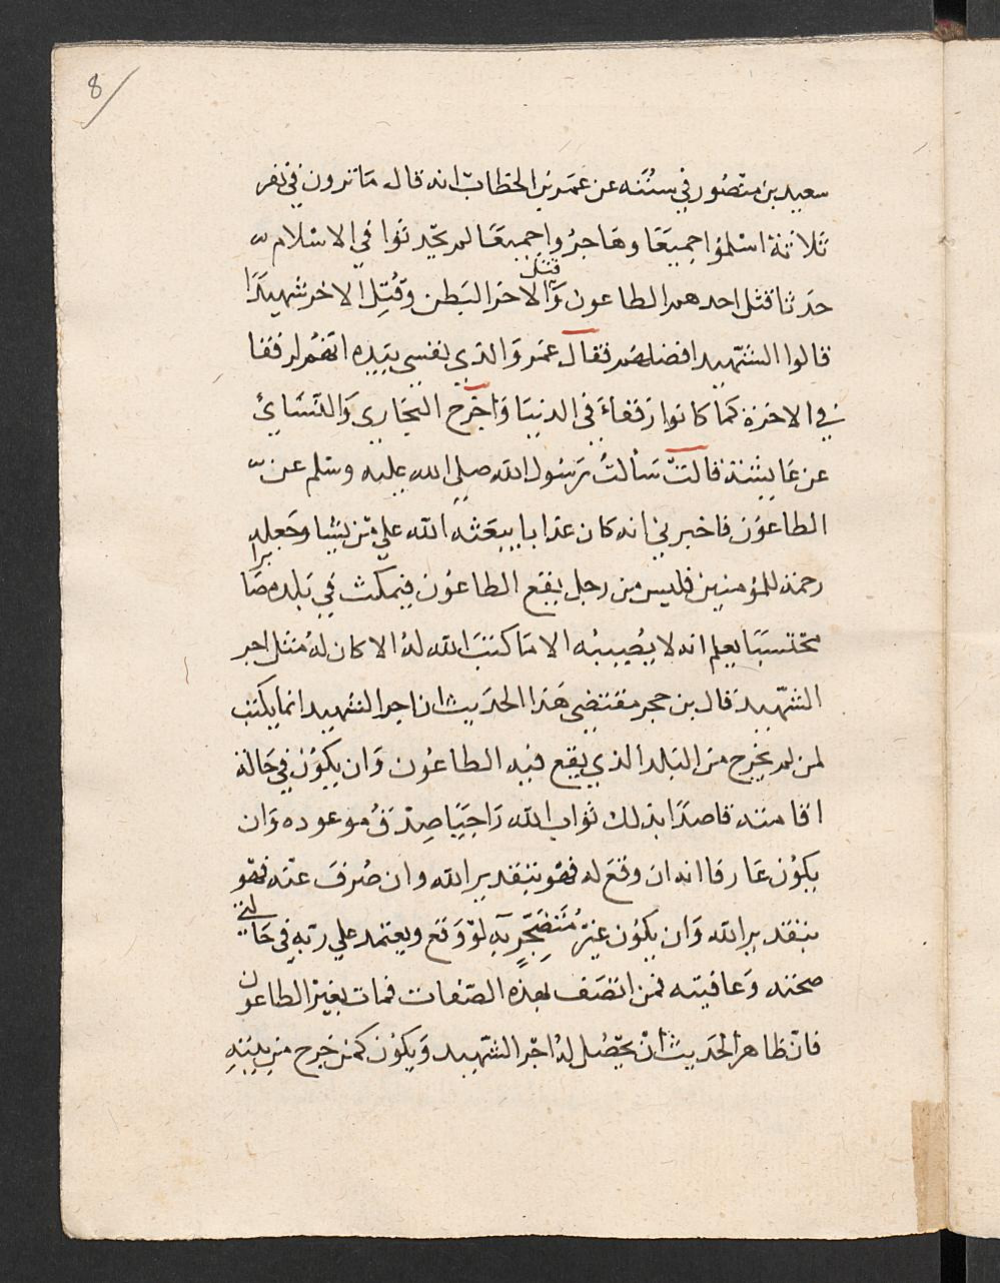 8
سعيد بن منصور في سننه عن عمر بن الخطاب انه قال ما ترون في نفر
ثلاثة اسلموا جميعا وهاجروا جميعا لم يحدثوا في الاسلام
حدثا قتل احدهم الطاعون وقتل الاخر البطن وقتل الاخر شهيدا
قالوا الشهيد افضلهم فقال عمر والذي نفسي بيده انهم لرفقا
في الاخرة كما كانوا رفقاء في الدنيا واخرج البخاري والنسائ
عن عايشة قالت سألت رسول الله صلى الله عليه وسلم عن
الطاعون فاخبرني انه كان عذابا يبعثه الله علي من يشا وجعله
رحمة للمؤمنين فليس من رجل يقع الطاعون فيمكث في بلده صابرا
محتسبا يعلم انه لا يصيبه الا ما كتب الله له الا كان له مثل اجر
الشهيد قال بن حجر مقتضي هذا الحديث ان اجر الشهيد انما يكتب
لمن لم يخرج من البلد الذي يقع فيه الطاعون وان يكون في حالة
اقامته قاصدا بذلك ثواب الله راجيا صدق موعوده وان
يكون عارفا انه ان وقع له فهو بتقدير الله وان صرف عنه فهو
بتقدير الله وان يكون غير متضجر به لو وقع ويعتمد علي ربه في حالتي
صحته وعافيته فمن اتصف بهذه الصفات فمات بغير الطاعون
فان ظاهر الحديث ان يحصل له اجر الشهيد ويكون كمن خرج من بيته